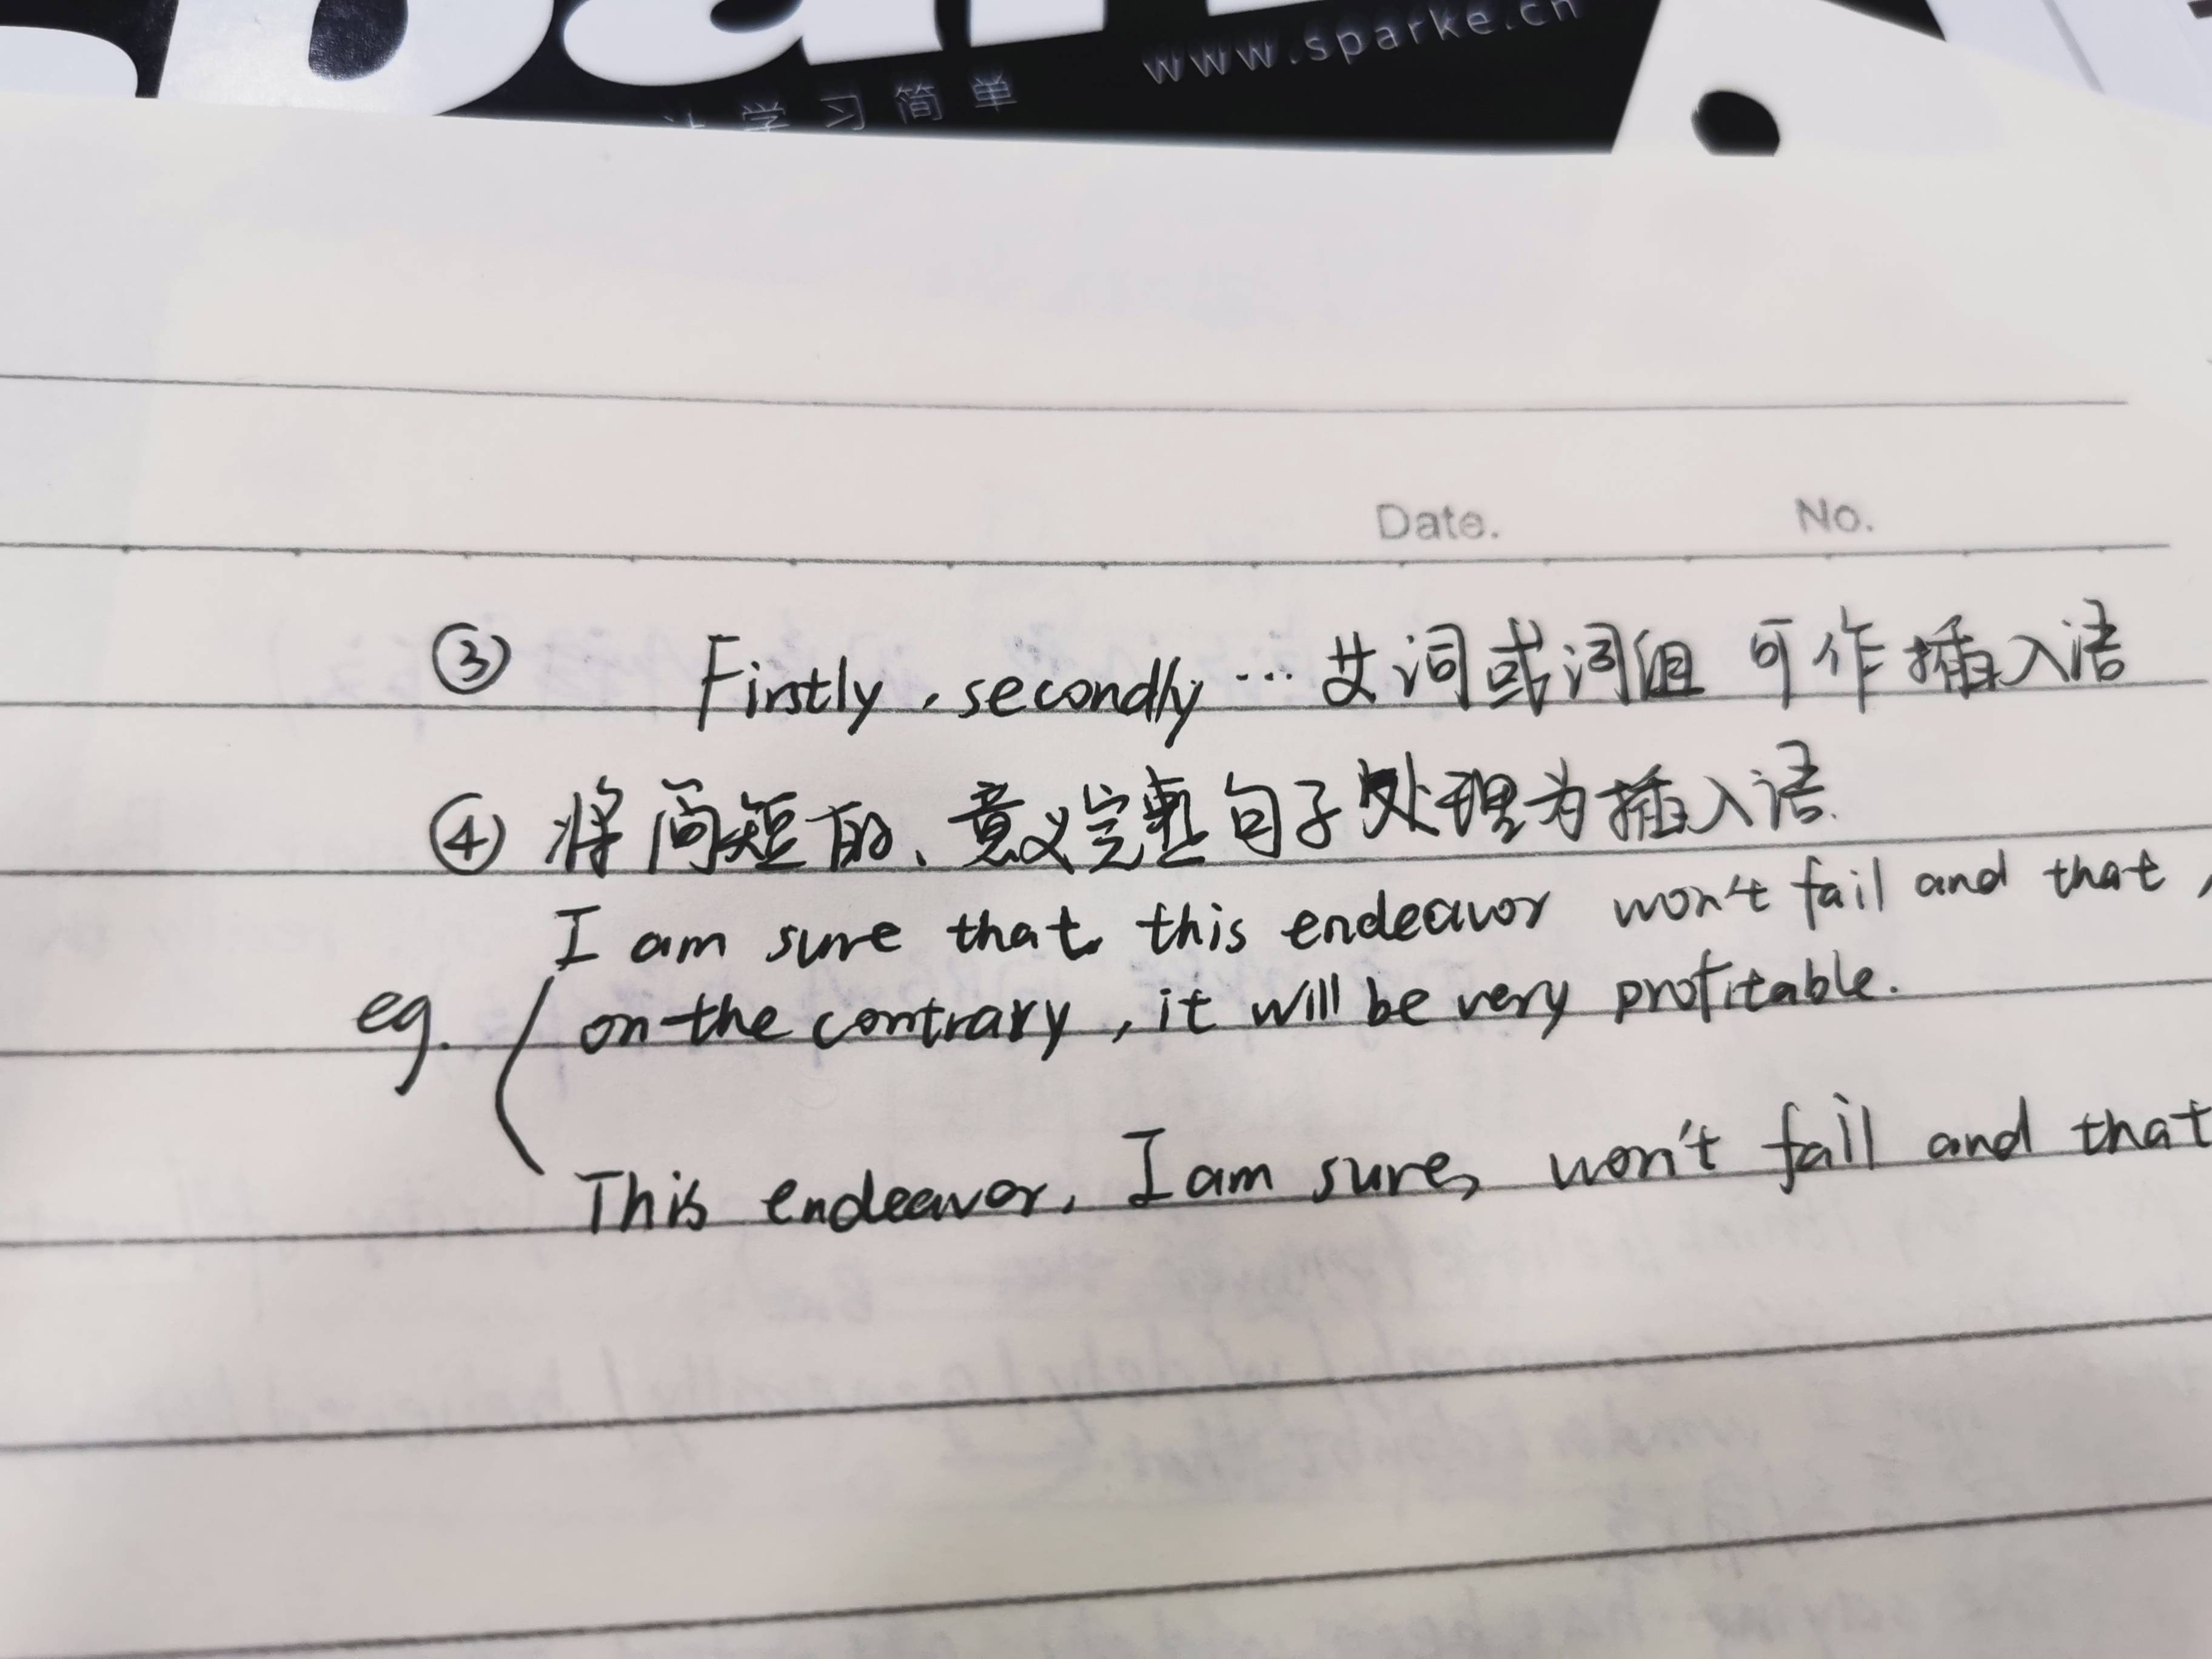 www.sparke.cn
学习简单
Date. No.
③ Firstly, secondly…艾词或词组 可作插入语
④ 将简短的、意义完整句子处理为插入语.
I am sure that this endeavor won't fail and that,
eg. on the contrary, it will be very profitable.
This endeavor, I am sure, won't fail and that